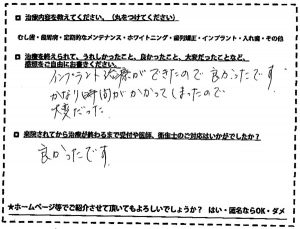 □ 治療内容を教えてください。（丸をつけてください）
むし歯・歯周病・定期的なメンテナンス・ホワイトニング・歯列矯正・インプラント・入れ歯・その他
□ 治療を終えられて、うれしかったこと、良かったこと、大変だったことなど、
感想をご自由にお書きください。
インプラント治療ができたので良かったです。
かなり時間がかかってしまったので
大変だった。
□ 来院されてから治療が終わるまで受付や医師、衛生士のご対応はいかがでしたか？
良かったです。
★ホームページ等でご紹介させて頂いてもよろしいでしょうか？ はい・匿名ならOK・ダメ